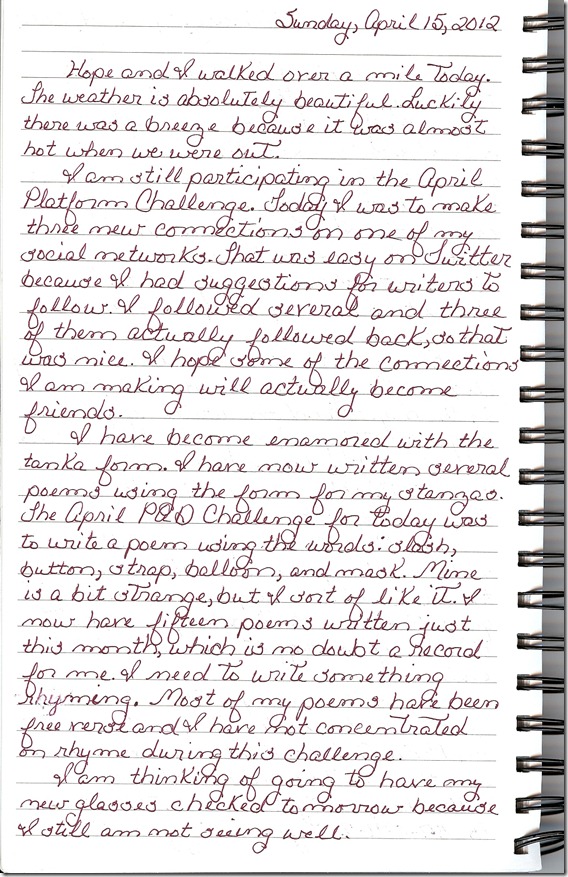 Sunday, April 15, 2012
Hope and I walked over a mile today.
The weather is absolutely beautiful. Luckily
there was a breeze because it was almost
hot when we were out.
I am still participating in the April
Platform Challenge. Today, I was to make
three new connections on one of my
social networks. That was easy on Twitter
because I had suggestions for writers to
follow. I followed several and three
of them actually followed back, so that
was nice. I hope some of the connections
I am making will actually become
friends.
I have become enamored with the
tanka form. I have now written several
poems using the form for my stanzas.
The April PAD Challenge for today was
to write a poem using the words: slash,
button, strap, balloon, and mask. Mine
is a bit strange, but I sort of like it. I
now have fifteen poems written just
this month, which is no doubt a record
for me. I need to write something
rhyming. Most of my poems have been
free verse and I have not concentrated
on rhyme during this challenge.
I am thinking of going to have my
new glasses checked tomorrow because
I still am not seeing well.